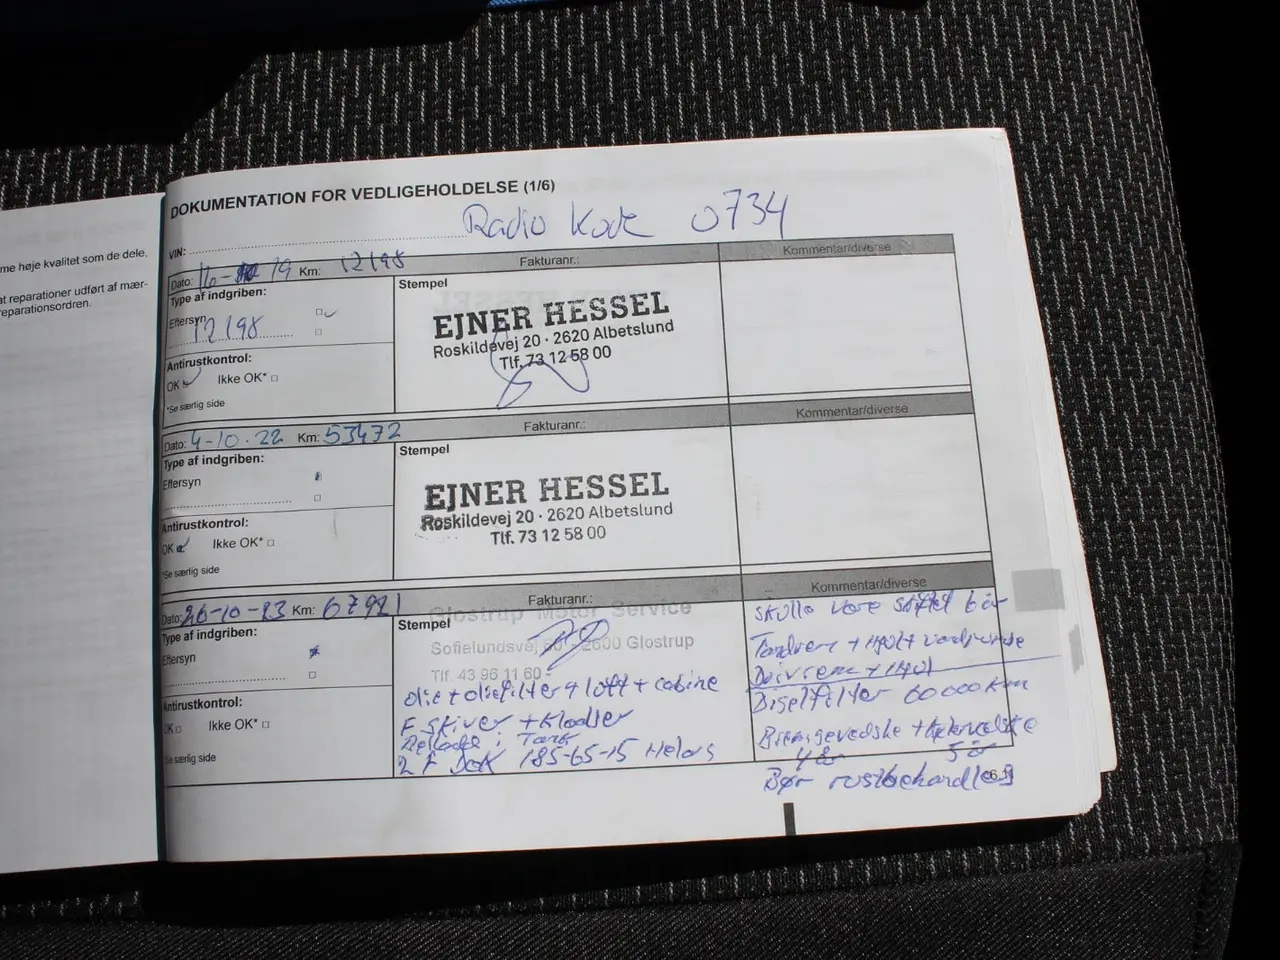 me høje kvalitet som de dele,
at reparationer udført af mær-
eparationsordren.
DOKUMENTATION FOR VEDLIGEHOLDELSE (1/6)
Radio Kode 0734
VIN:
Dato: 16- 19 Km: 12198 Fakturanr.: Kommentar/diverse
Type af indgriben:
Eftersyn
12198
Antirustkontrol:
OK Ikke OK*
*Se særlig side
Stempel
EJNER HESSEL
Roskildevej 20 · 2620 Albetslund
Tlf. 73 12 58 00
Dato: 4-10.22 Km: 53472 Fakturanr.: Kommentar/diverse
Type af indgriben:
Eftersyn
Antirustkontrol:
OK Ikke OK*
*Se særlig side
Stempel
EJNER HESSEL
Roskildevej 20 · 2620 Albetslund
Tlf. 73 12 58 00
Dato: 26-10-23 Km: 67921 Fakturanr.: Kommentar/diverse
Type af indgriben:
Eftersyn
Antirustkontrol:
OK Ikke OK*
Se særlig side
Stempel
Glostrup Motor Service
Sofielundsvej 60 - 2600 Glostrup
Tlf. 43 96 11 60
olie + oliefilter + luft + cabine
F skiver + Klodser
i Tank
2 F Dæk 185-65-15 Helårs
Tandrem + Hjul + vandpumpe
+ Hjul
Diselfilter 60000km
Bremsevedske + kølervedske
4 år 5 år
Bør rustbehandles